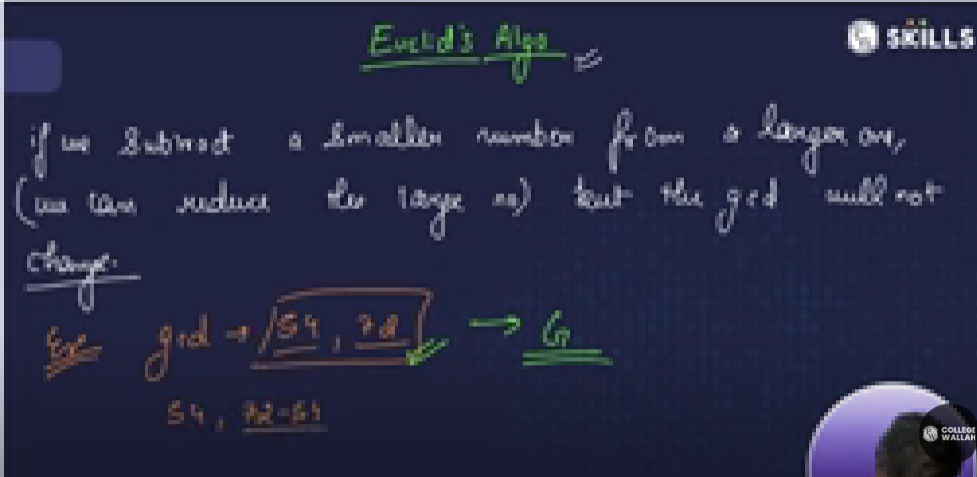 Euclid's Algo
SKILLS
if we subtract a smaller number from a larger one,
(we can reduce the large no) but the gcd will not
change.
Ex gcd → 54, 72 → G
54, 72-54
COLLEGE
WALLAH